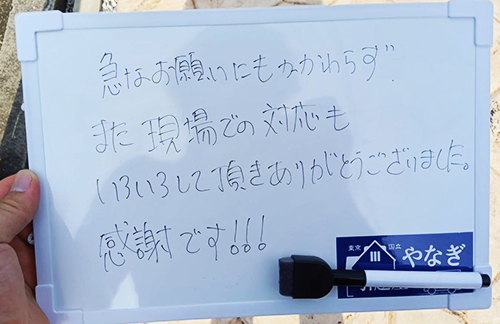 急なお願いにもかかわらず
また現場での対応も
いろいろして頂きありがとうございました。
感謝です!!!
東京 国立 やなぎ